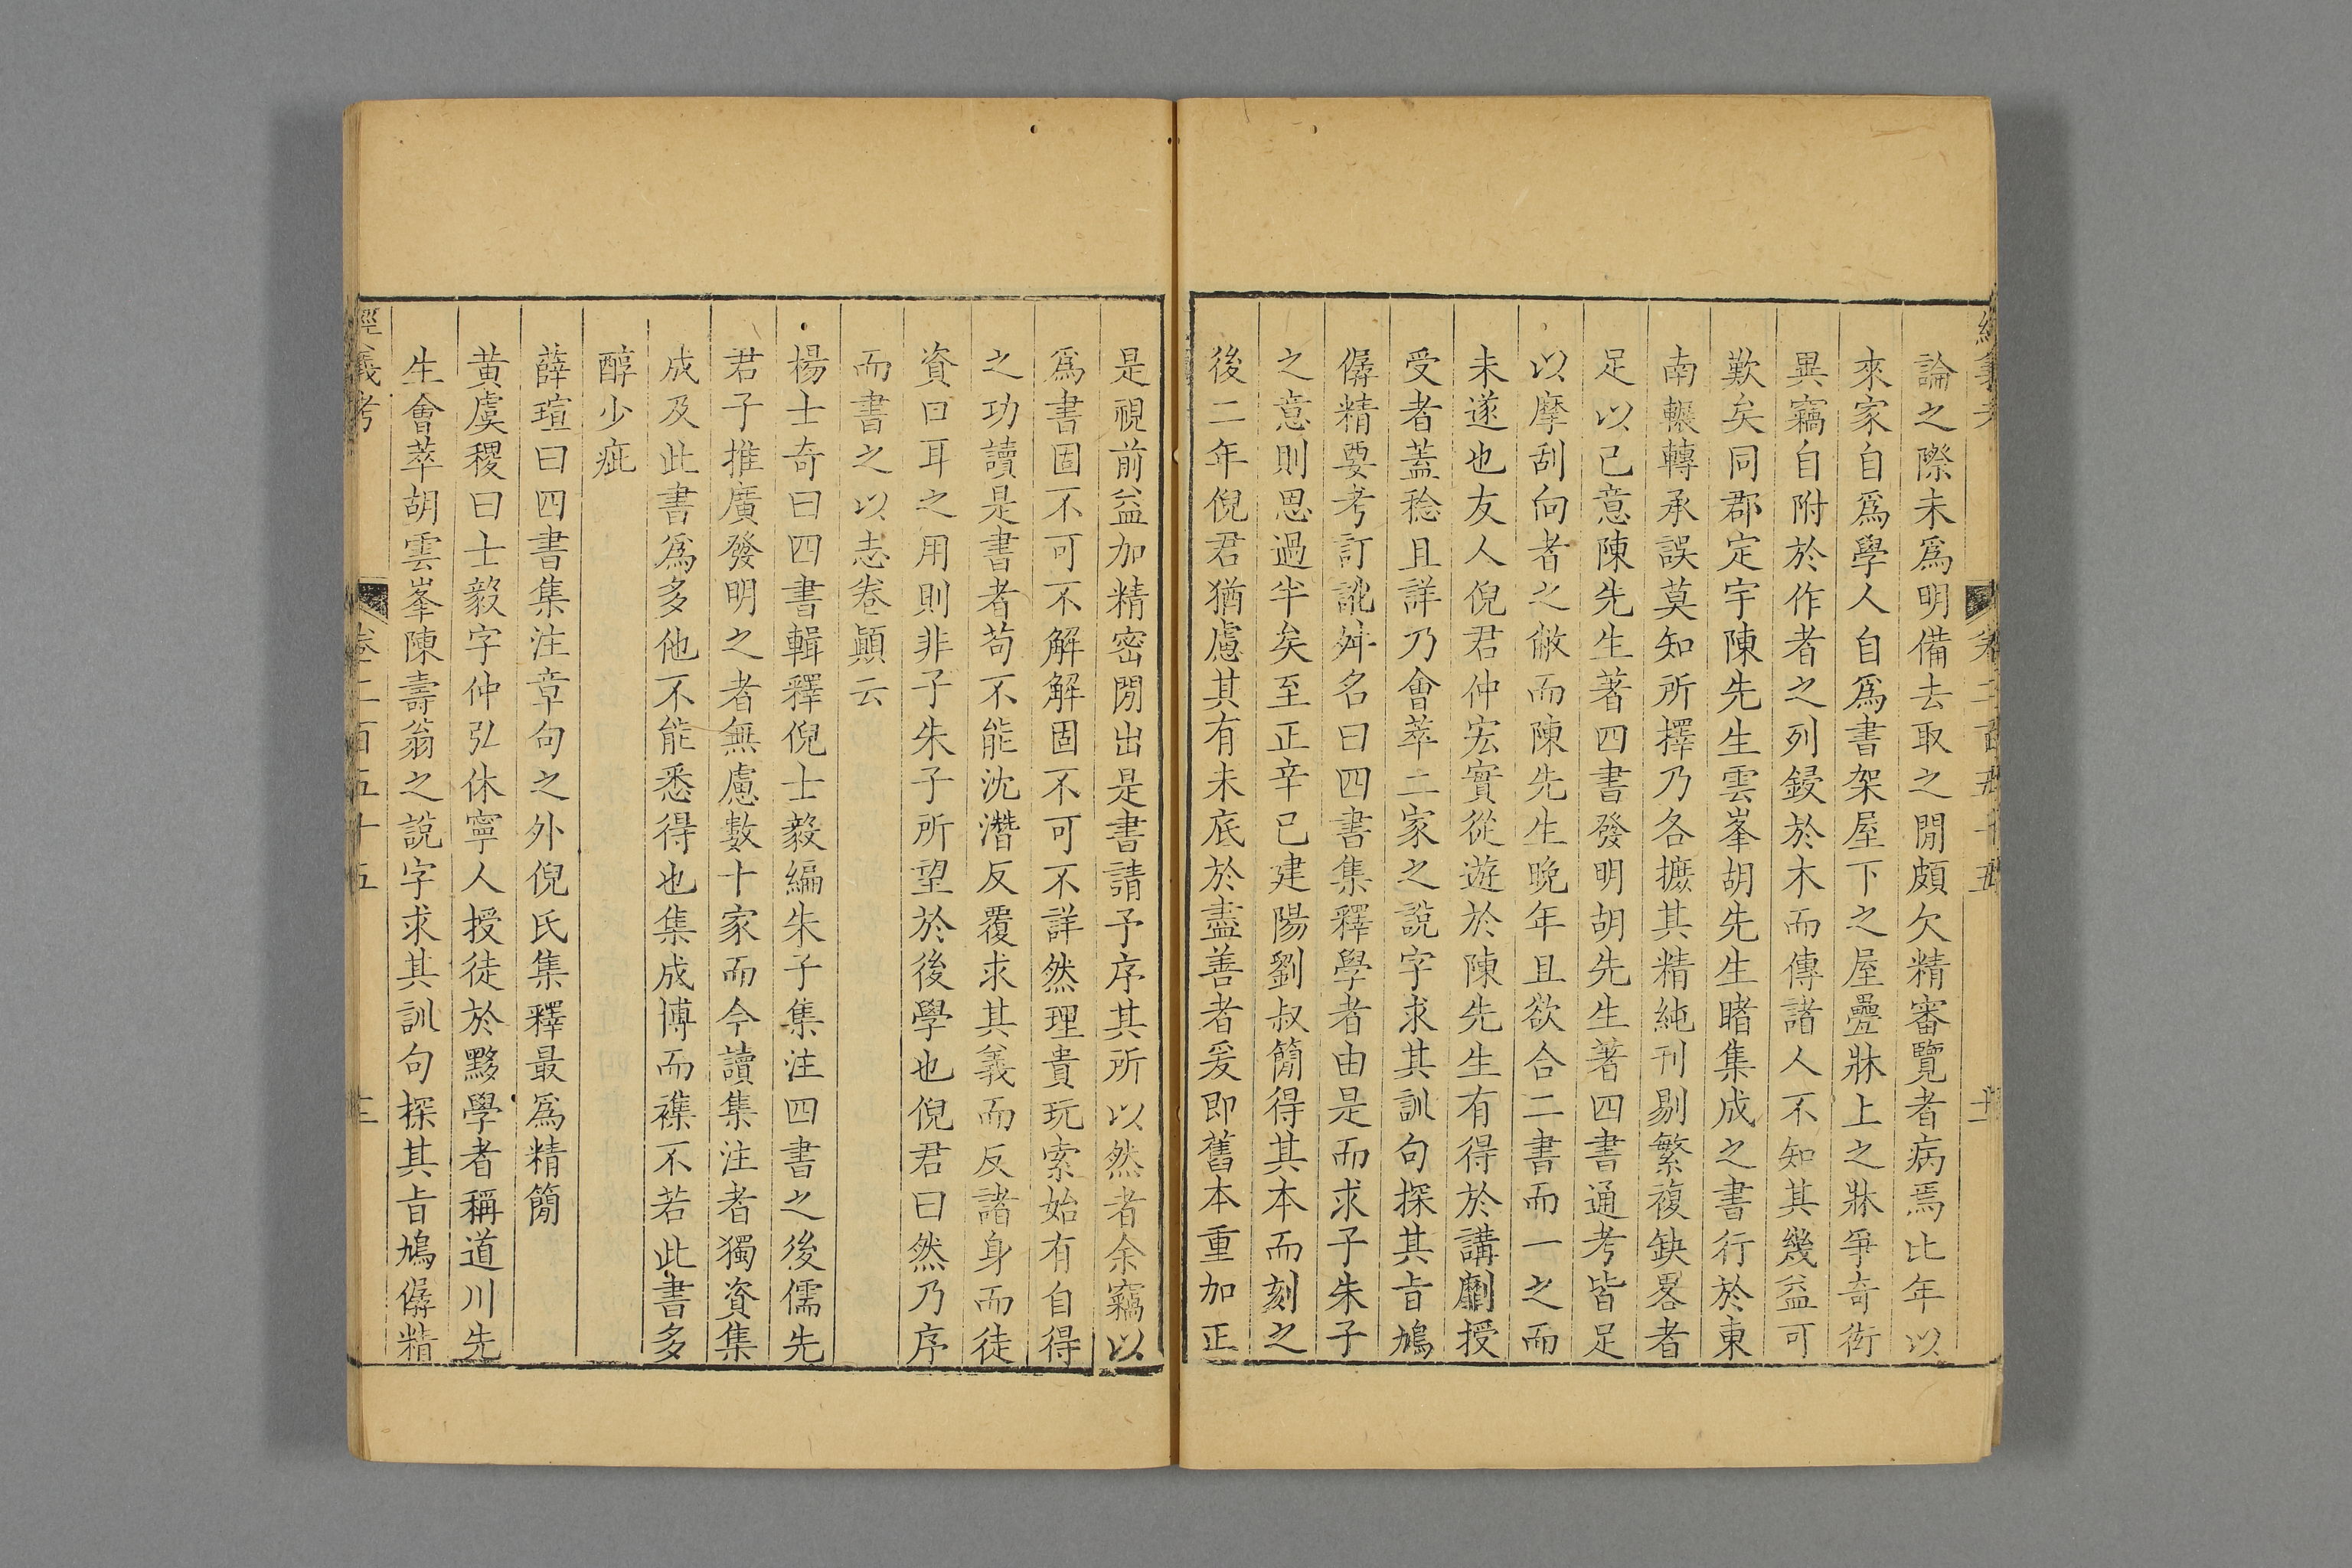 論之際未爲明備去取之閒頗欠精審覽者病焉比年以
來家自爲學人自爲書架屋下之屋疊牀上之牀爭奇衒
異竊自附於作者之列鋟於木而傳諸人不知其幾益可
歎矣同郡定宇陳先生雲峯胡先生睹集成之書行於東
南輾轉承誤莫知所擇乃各摭其精純刊剔繁複缺畧者
足以己意陳先生著四書發明胡先生著四書通考皆足
以摩刮向者之敝而陳先生晚年且欲合二書而一之而
未遂也友人倪君仲宏實從遊於陳先生有得於講劘授
受者蓋稔且詳乃會萃二家之說字求其訓句探其㫖鳩
僝精要考訂訛舛名曰四書集釋學者由是而求子朱子
之意則思過半矣至正辛巳建陽劉叔簡得其本而刻之
後二年倪君猶慮其有未底於盡善者爰即舊本重加正
是視前益加精密閒出是書請予序其所以然者余竊以
爲書固不可不解解固不可不詳然理貴玩索始有自得
之功讀是書者苟不能沈潛反覆求其義而反諸身而徒
資口耳之用則非子朱子所望於後學也倪君曰然乃序
而書之以志卷顚云
楊士奇曰四書輯釋倪士毅編朱子集注四書之後儒先
君子推廣發明之者無慮數十家而今讀集注者獨資集
成及此書爲多他不能悉得也集成博而襍不若此書多
醇少疵
薛瑄曰四書集注章句之外倪氏集釋最爲精簡
黃虞稷曰士毅字仲弘休寧人授徒於黟學者稱道川先
生會萃胡雲峯陳壽翁之說字求其訓句探其㫖鳩僝精
經義考 卷二百五十五